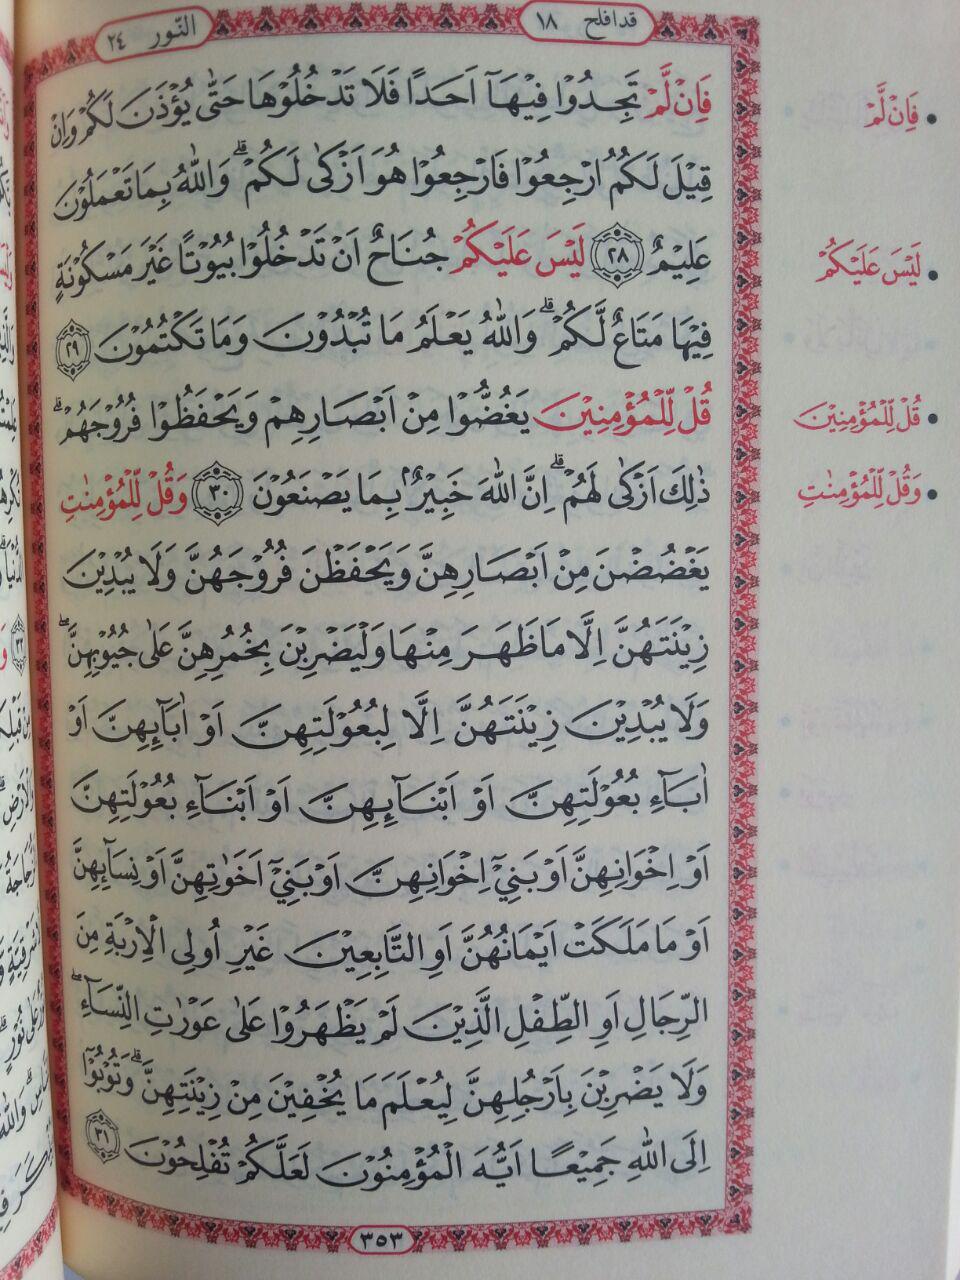 قدافلح ١٨
النّور ٢٤
فَاِنْ لَّمْ تَجِدُوْا فِيْهَآ اَحَدًا فَلَا تَدْخُلُوْهَا حَتّٰى يُؤْذَنَ لَكُمْ وَاِنْ
قِيْلَ لَكُمُ ارْجِعُوْا فَارْجِعُوْا هُوَ اَزْكٰى لَكُمْ ۗ وَاللّٰهُ بِمَا تَعْمَلُوْنَ
عَلِيْمٌ ٢٨ لَيْسَ عَلَيْكُمْ جُنَاحٌ اَنْ تَدْخُلُوْا بُيُوْتًا غَيْرَ مَسْكُوْنَةٍ
فِيْهَا مَتَاعٌ لَّكُمْ ۗ وَاللّٰهُ يَعْلَمُ مَا تُبْدُوْنَ وَمَا تَكْتُمُوْنَ ٢٩
قُلْ لِّلْمُؤْمِنِيْنَ يَغُضُّوْا مِنْ اَبْصَارِهِمْ وَيَحْفَظُوْا فُرُوْجَهُمْ ۗ
ذٰلِكَ اَزْكٰى لَهُمْ ۗ اِنَّ اللّٰهَ خَبِيْرٌۢ بِمَا يَصْنَعُوْنَ ٣٠ وَقُلْ لِّلْمُؤْمِنٰتِ
يَغْضُضْنَ مِنْ اَبْصَارِهِنَّ وَيَحْفَظْنَ فُرُوْجَهُنَّ وَلَا يُبْدِيْنَ
زِيْنَتَهُنَّ اِلَّا مَا ظَهَرَ مِنْهَا وَلْيَضْرِبْنَ بِخُمُرِهِنَّ عَلٰى جُيُوْبِهِنَّ ۖ
وَلَا يُبْدِيْنَ زِيْنَتَهُنَّ اِلَّا لِبُعُوْلَتِهِنَّ اَوْ اٰبَآئِهِنَّ اَوْ
اٰبَآءِ بُعُوْلَتِهِنَّ اَوْ اَبْنَآئِهِنَّ اَوْ اَبْنَآءِ بُعُوْلَتِهِنَّ
اَوْ اِخْوَانِهِنَّ اَوْ بَنِيْٓ اِخْوَانِهِنَّ اَوْ بَنِيْٓ اَخَوٰتِهِنَّ اَوْ نِسَآئِهِنَّ
اَوْ مَا مَلَكَتْ اَيْمَانُهُنَّ اَوِ التَّابِعِيْنَ غَيْرِ اُولِى الْاِرْبَةِ مِنَ
الرِّجَالِ اَوِ الطِّفْلِ الَّذِيْنَ لَمْ يَظْهَرُوْا عَلٰى عَوْرٰتِ النِّسَآءِ ۖ
وَلَا يَضْرِبْنَ بِاَرْجُلِهِنَّ لِيُعْلَمَ مَا يُخْفِيْنَ مِنْ زِيْنَتِهِنَّ ۗ وَتُوْبُوْٓا
اِلَى اللّٰهِ جَمِيْعًا اَيُّهَ الْمُؤْمِنُوْنَ لَعَلَّكُمْ تُفْلِحُوْنَ ٣١
٣٥٣
• فَاِنْ لَّمْ
• لَيْسَ عَلَيْكُمْ
• قُلْ لِّلْمُؤْمِنِيْنَ
• وَقُلْ لِّلْمُؤْمِنٰتِ